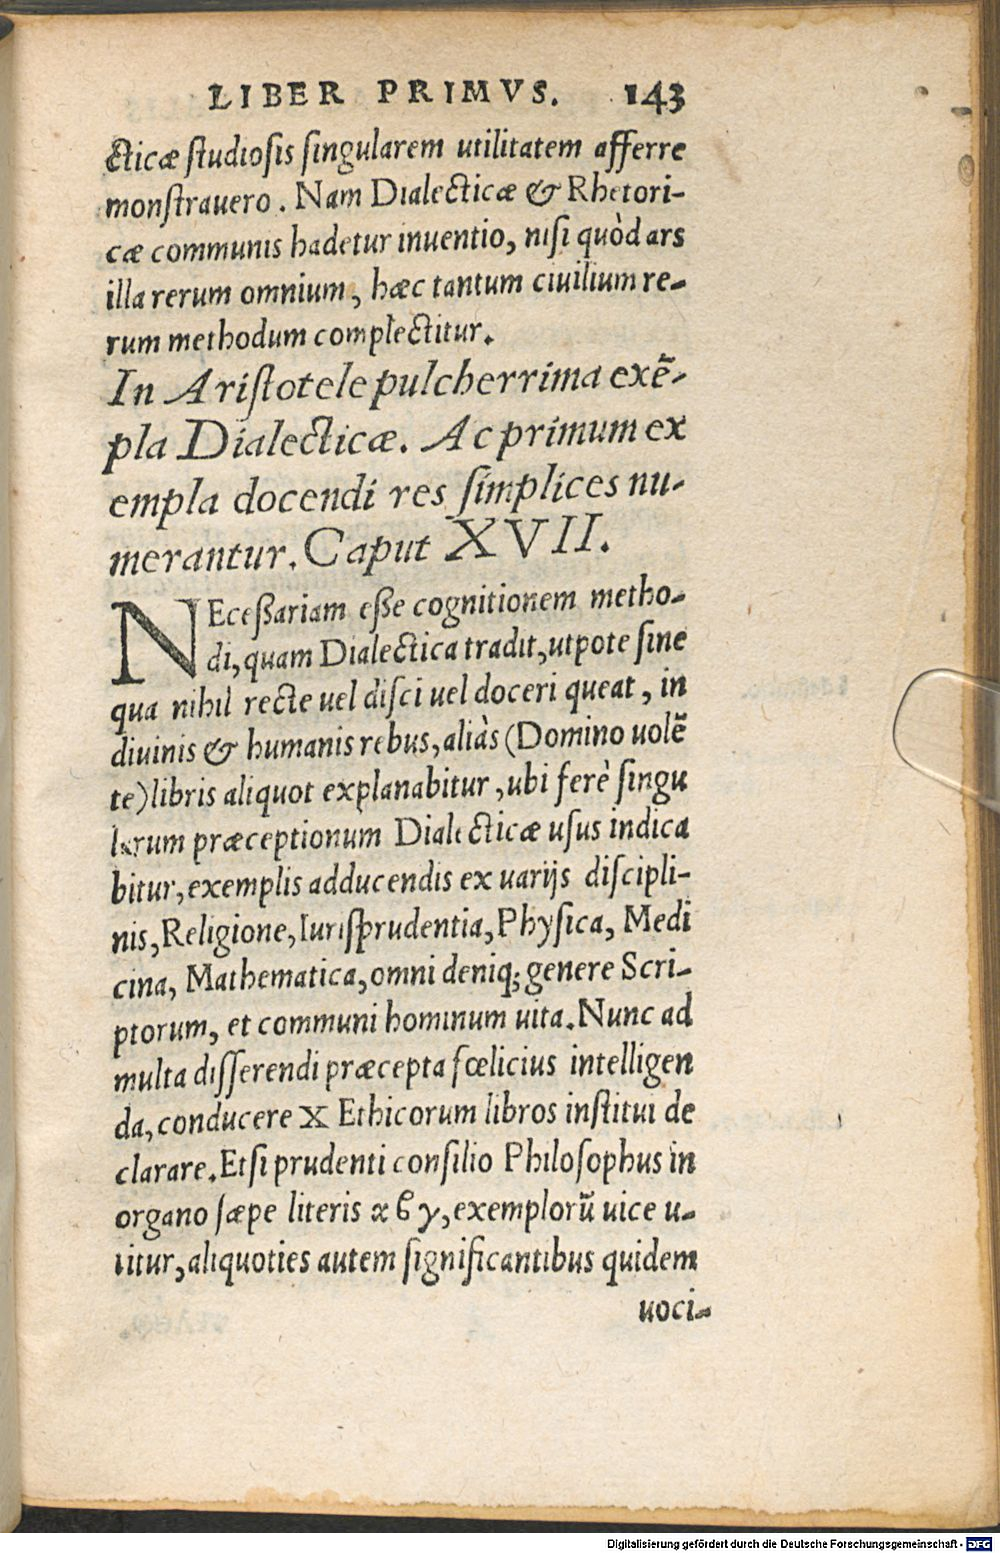 LIBER PRIMVS. 143
cticæ studiosis singularem utilitatem afferre
monstrauero. Nam Dialecticæ & Rhetori-
cæ communis hadetur inuentio, nisi quòd ars
illa rerum omnium, hæc tantum ciuilium re-
rum methodum complectitur.
In Aristotele pulcherrima exē-
pla Dialecticæ. Ac primum ex
empla docendi res simplices nu-
merantur. Caput XVII.
NEceßariam eße cognitionem metho-
di, quam Dialectica tradit, utpote sine
qua nihil recte uel disci uel doceri queat, in
diuinis & humanis rebus, aliàs (Domino uolē
te) libris aliquot explanabitur, ubi ferè singu
larum præceptionum Dialecticæ usus indica
bitur, exemplis adducendis ex uarijs discipli-
nis, Religione, Iurisprudentia, Physica, Medi
cina, Mathematica, omni deniq; genere Scri-
ptorum, et communi hominum uita. Nunc ad
multa disserendi præcepta fœlicius intelligen
da, conducere X Ethicorum libros institui de
clarare. Etsi prudenti consilio Philosophus in
organo sæpe literis α ϐ γ, exemplorū uice u-
titur, aliquoties autem significantibus quidem
uoci-
Digitalisierung gefördert durch die Deutsche Forschungsgemeinschaft - DFG